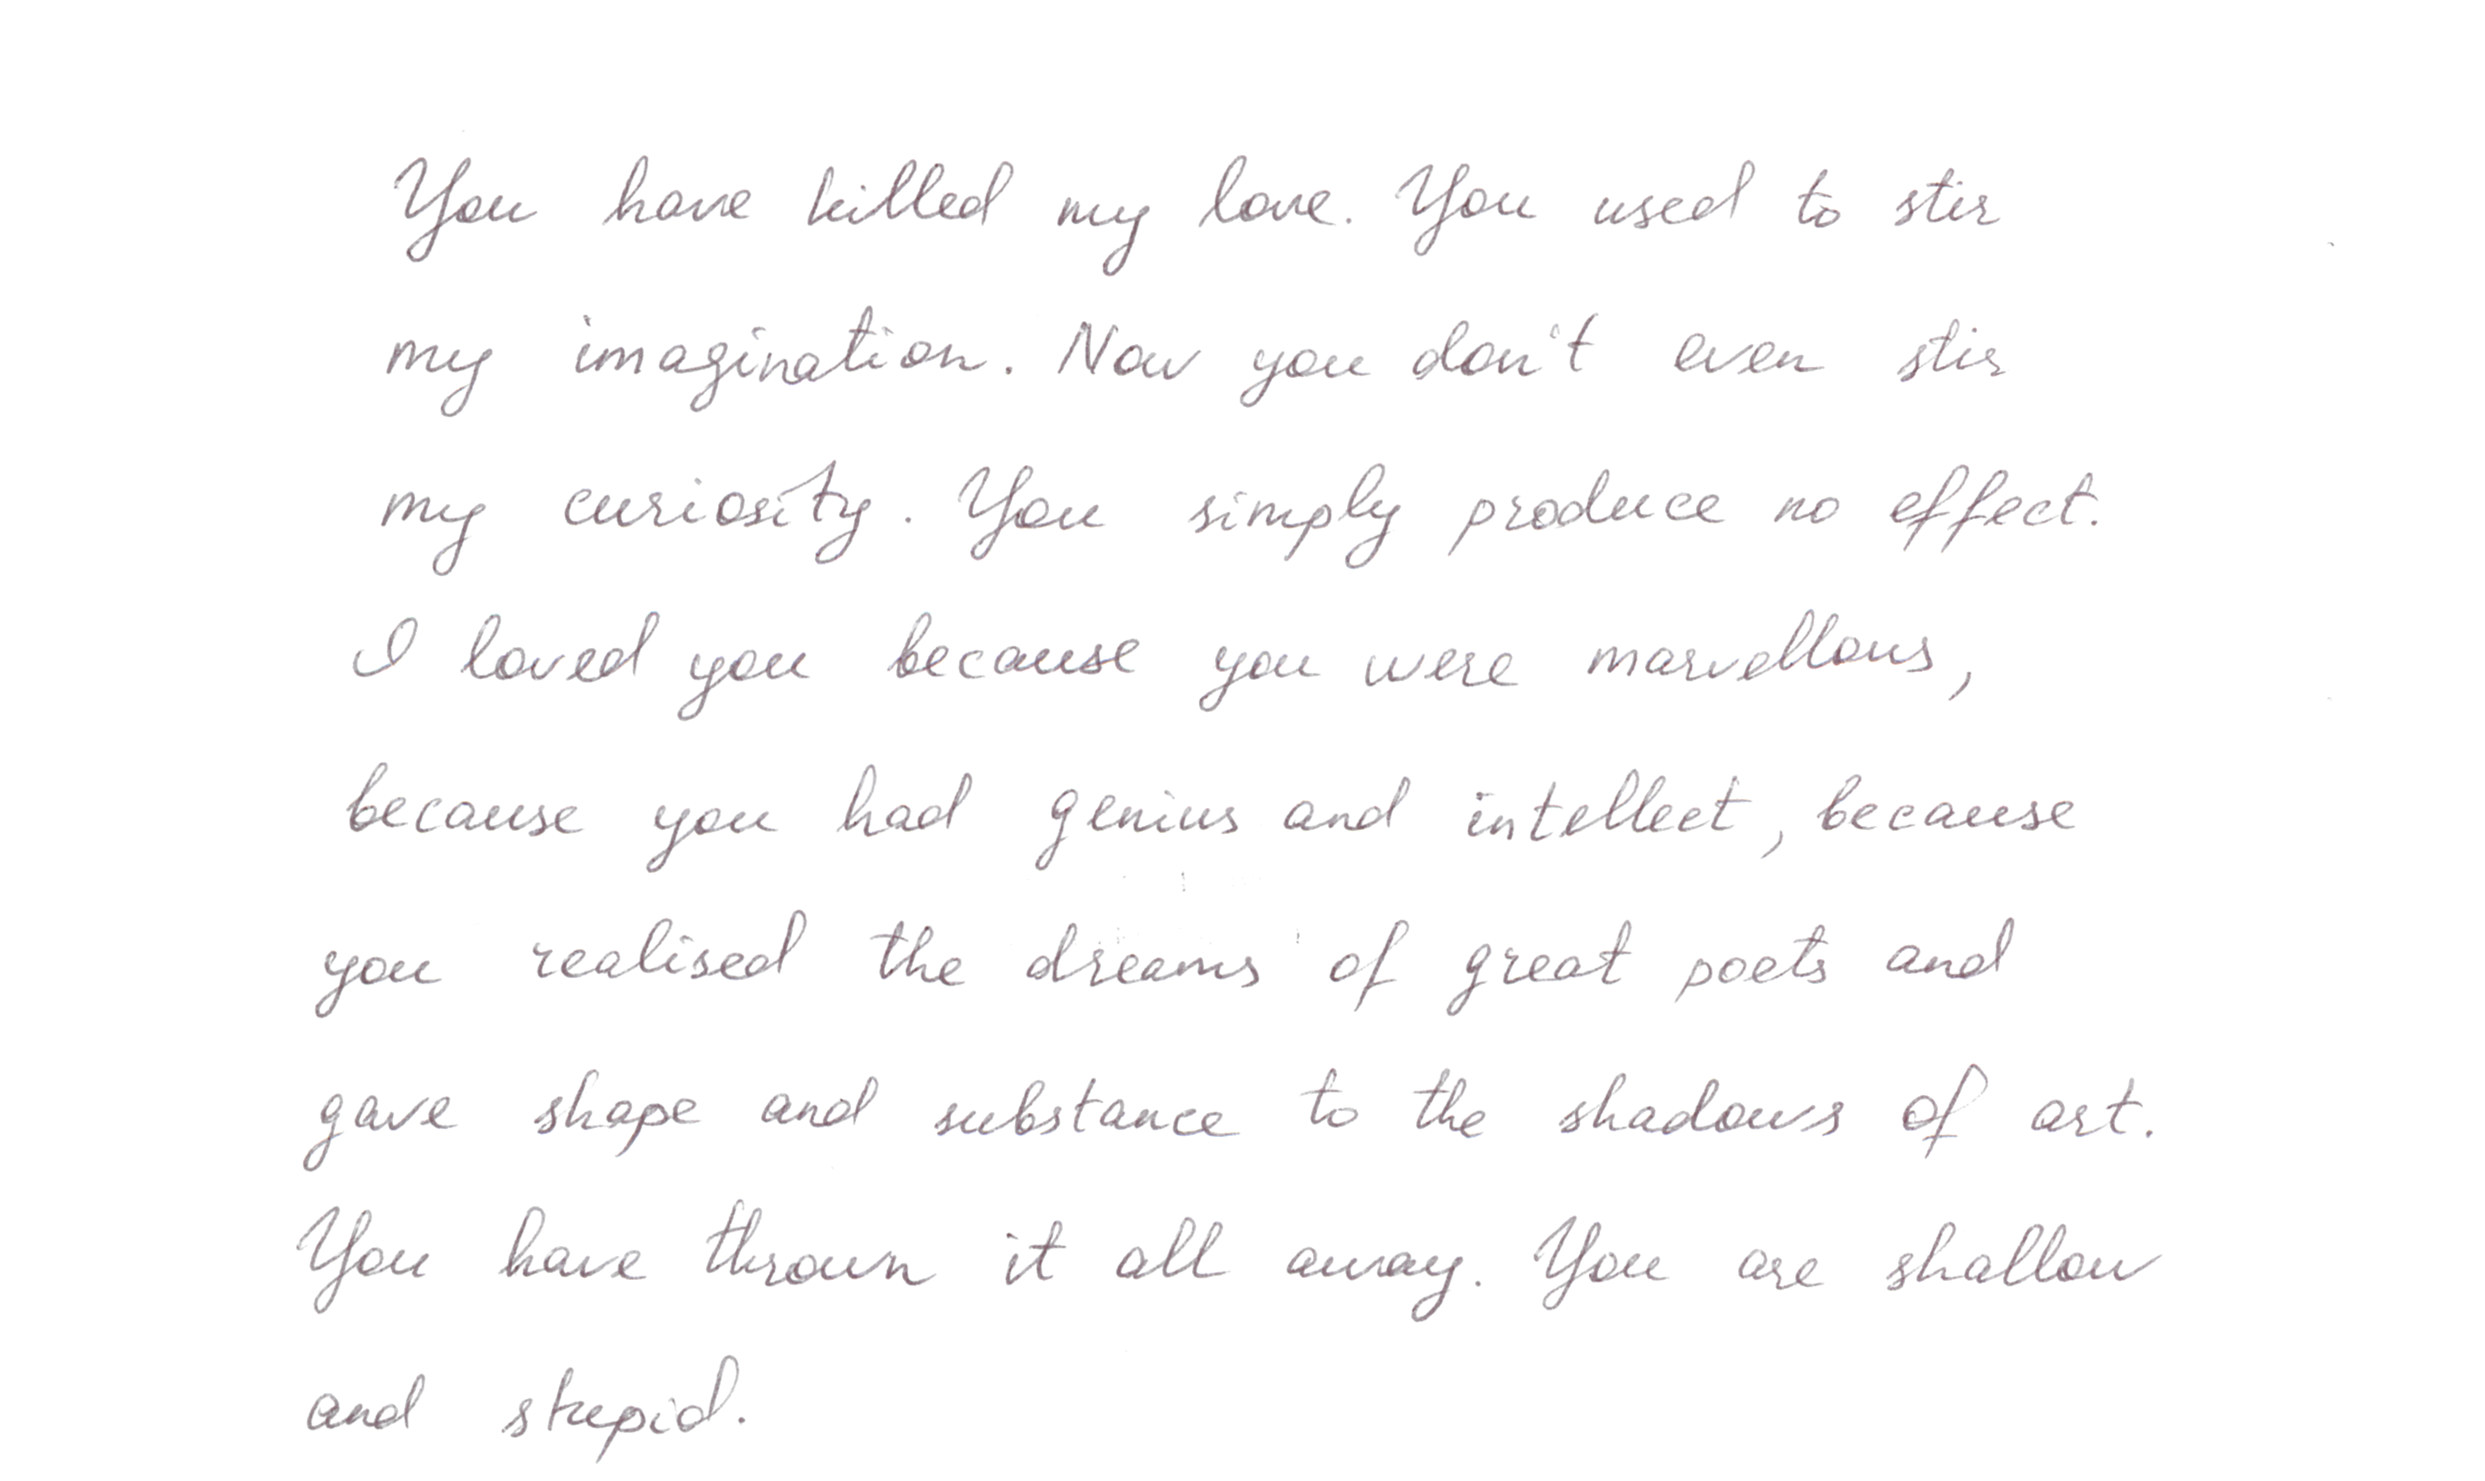 You have killed my love. You used to stir
my imagination. Now you don't even stir
my curiosity. You simply produce no effect.
I loved you because you were marvellous,
because you had genius and intellect, because
you realised the dreams of great poets and
gave shape and substance to the shadows of art.
You have thrown it all away. You are shallow
and stupid.